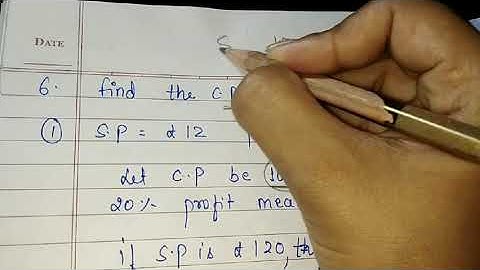 DATE
6. find the C.P
① S.P = ₹ 12
Let C.P be
20% profit
if S.P is ₹ 120,